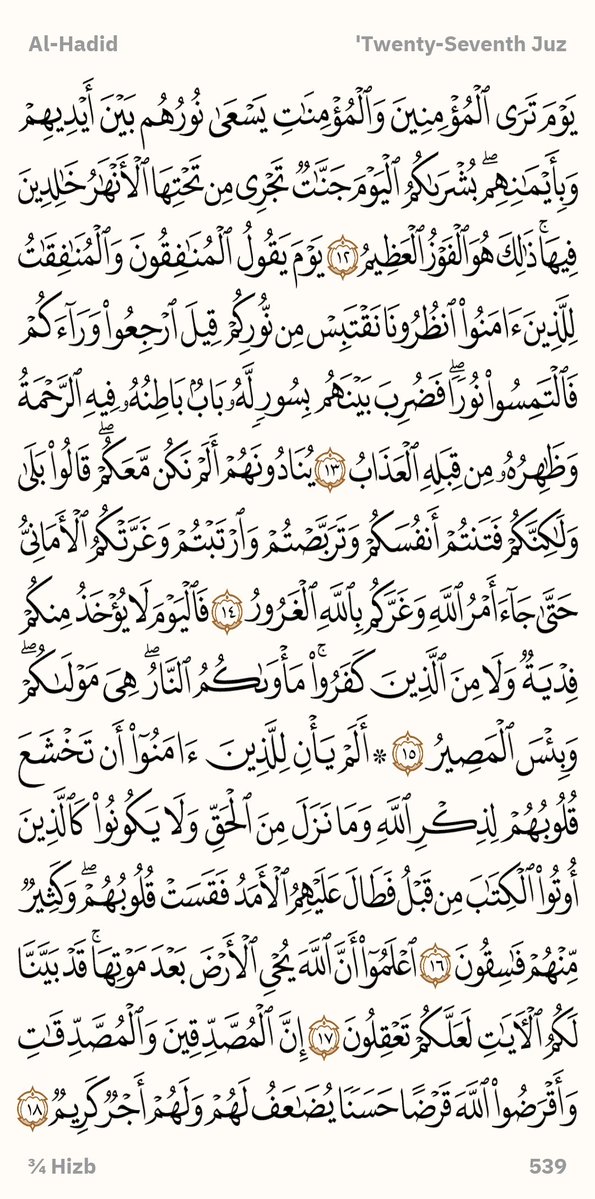 Al-Hadid
'Twenty-Seventh Juz
يَوْمَ تَرَى ٱلْمُؤْمِنِينَ وَٱلْمُؤْمِنَـٰتِ يَسْعَىٰ نُورُهُم بَيْنَ أَيْدِيهِمْ
وَبِأَيْمَـٰنِهِمۖ بُشْرَىٰكُمُ ٱلْيَوْمَ جَنَّـٰتٌ تَجْرِى مِن تَحْتِهَا ٱلْأَنْهَـٰرُ خَـٰلِدِينَ
فِيهَاۚ ذَٰلِكَ هُوَ ٱلْفَوْزُ ٱلْعَظِيمُ ١٢ يَوْمَ يَقُولُ ٱلْمُنَـٰفِقُونَ وَٱلْمُنَـٰفِقَـٰتُ
لِلَّذِينَ ءَامَنُوا۟ ٱنظُرُونَا نَقْتَبِسْ مِن نُّورِكُمْ قِيلَ ٱرْجِعُوا۟ وَرَآءَكُمْ
فَٱلْتَمِسُوا۟ نُورًۭاۖ فَضُرِبَ بَيْنَهُم بِسُورٍۢ لَّهُۥ بَابٌۢ بَاطِنُهُۥ فِيهِ ٱلرَّحْمَةُ
وَظَـٰهِرُهُۥ مِن قِبَلِهِ ٱلْعَذَابُ ١٣ يُنَادُونَهُمْ أَلَمْ نَكُن مَّعَكُمْۖ قَالُوا۟ بَلَىٰ
وَلَـٰكِنَّكُمْ فَتَنتُمْ أَنفُسَكُمْ وَتَرَبَّصْتُمْ وَٱرْتَبْتُمْ وَغَرَّتْكُمُ ٱلْأَمَانِىُّ
حَتَّىٰ جَآءَ أَمْرُ ٱللَّهِ وَغَرَّكُم بِٱللَّهِ ٱلْغَرُورُ ١٤ فَٱلْيَوْمَ لَا يُؤْخَذُ مِنكُمْ
فِدْيَةٌۭ وَلَا مِنَ ٱلَّذِينَ كَفَرُوا۟ۚ مَأْوَىٰكُمُ ٱلنَّارُۖ هِىَ مَوْلَىٰكُمْۖ
وَبِئْسَ ٱلْمَصِيرُ ١٥ ۞ أَلَمْ يَأْنِ لِلَّذِينَ ءَامَنُوٓا۟ أَن تَخْشَعَ
قُلُوبُهُمْ لِذِكْرِ ٱللَّهِ وَمَا نَزَلَ مِنَ ٱلْحَقِّ وَلَا يَكُونُوا۟ كَٱلَّذِينَ
أُوتُوا۟ ٱلْكِتَـٰبَ مِن قَبْلُ فَطَالَ عَلَيْهِمُ ٱلْأَمَدُ فَقَسَتْ قُلُوبُهُمْۖ وَكَثِيرٌۭ
مِّنْهُمْ فَـٰسِقُونَ ١٦ ٱعْلَمُوٓا۟ أَنَّ ٱللَّهَ يُحْىِ ٱلْأَرْضَ بَعْدَ مَوْتِهَاۚ قَدْ بَيَّنَّا
لَكُمُ ٱلْـَٔايَـٰتِ لَعَلَّكُمْ تَعْقِلُونَ ١٧ إِنَّ ٱلْمُصَّدِّقِينَ وَٱلْمُصَّدِّقَـٰتِ
وَأَقْرَضُوا۟ ٱللَّهَ قَرْضًا حَسَنًۭا يُضَـٰعَفُ لَهُمْ وَلَهُمْ أَجْرٌۭ كَرِيمٌۭ ١٨
¾ Hizb
539